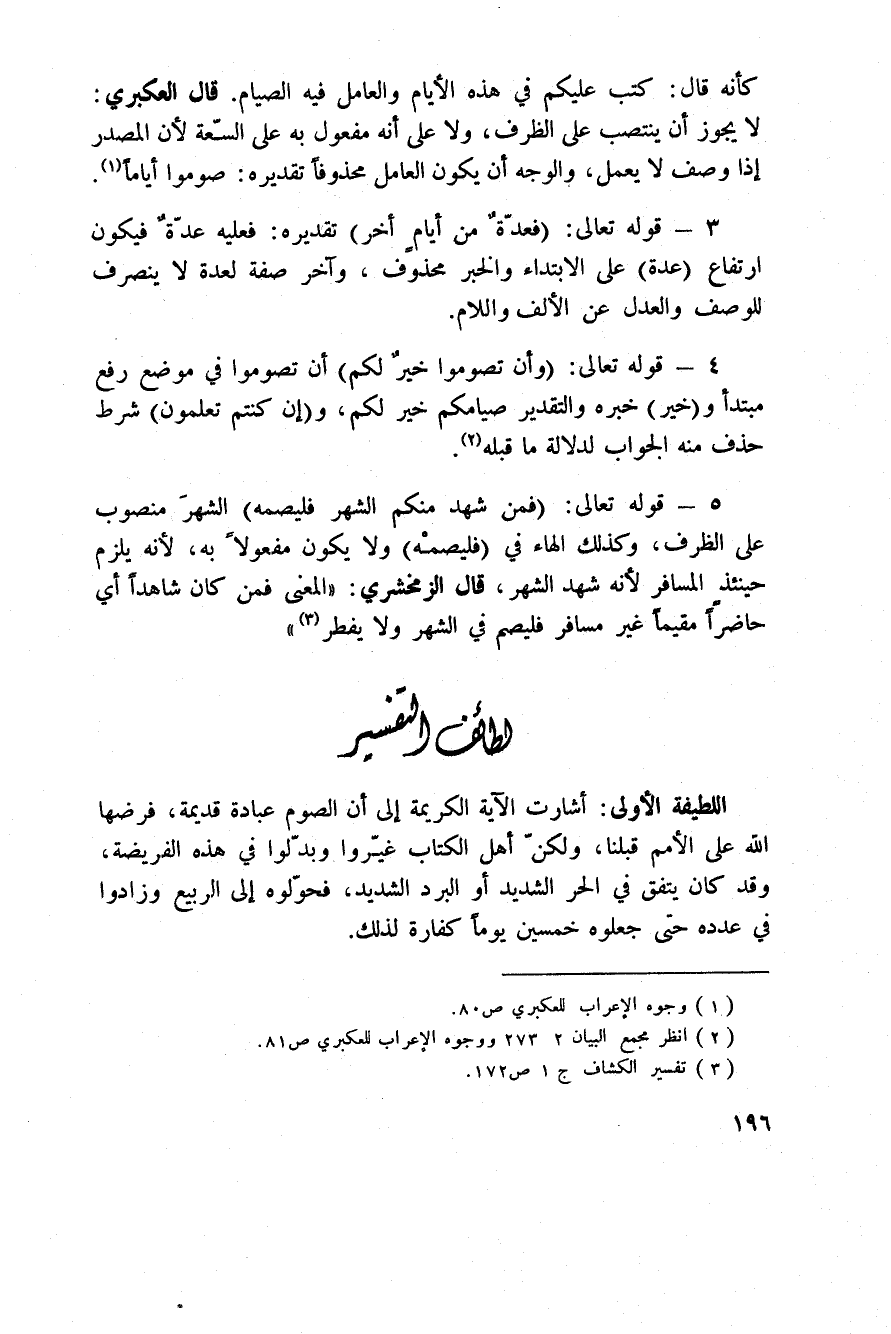 كأنه قال: كتب عليكم في هذه الأيام والعامل فيه الصيام. قال العكبري:
لا يجوز أن ينتصب على الظرف، ولا على أنه مفعول به على السّعة لأن المصدر
إذا وصف لا يعمل، والوجه أن يكون العامل محذوفاً تقديره: صوموا أياماً(١).
٣ — قوله تعالى: (فعدّةٌ من أيامٍ أخر) تقديره: فعليه عدّةٌ فيكون
ارتفاع (عدة) على الابتداء والخبر محذوف ، وآخر صفة لعدة لا ينصرف
للوصف والعدل عن الألف واللام.
٤ — قوله تعالى: (وأن تصوموا خيرٌ لكم) أن تصوموا في موضع رفع
مبتدأ و(خير) خبره والتقدير صيامكم خير لكم، و(إن كنتم تعلمون) شرط
حذف منه الجواب لدلالة ما قبله(٢).
٥ — قوله تعالى: (فمن شهد منكم الشهر فليصمه) الشهرَ منصوب
على الظرف، وكذلك الهاء في (فليصمْه) ولا يكون مفعولاً به، لأنه يلزم
حينئذٍ المسافر لأنه شهد الشهر، قال الزمخشري: «المعنى فمن كان شاهداً أي
حاضراً مقيماً غير مسافر فليصم في الشهر ولا يفطر(٣)»
لطائف التفسير
اللطيفة الأولى: أشارت الآية الكريمة إلى أن الصوم عبادة قديمة، فرضها
الله على الأمم قبلنا، ولكنّ أهل الكتاب غيّروا وبدّلوا في هذه الفريضة،
وقد كان يتفق في الحر الشديد أو البرد الشديد، فحوّلوه إلى الربيع وزادوا
في عدده حتى جعلوه خمسين يوماً كفارة لذلك.
(١) وجوه الإعراب للعكبري ص٨٠.
(٢) انظر مجمع البيان ٢ ٢٧٣ ووجوه الإعراب للعكبري ص٨١.
(٣) تفسير الكشاف ج ١ ص١٧٢.
١٩٦